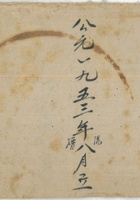 公元一九五三年八月立